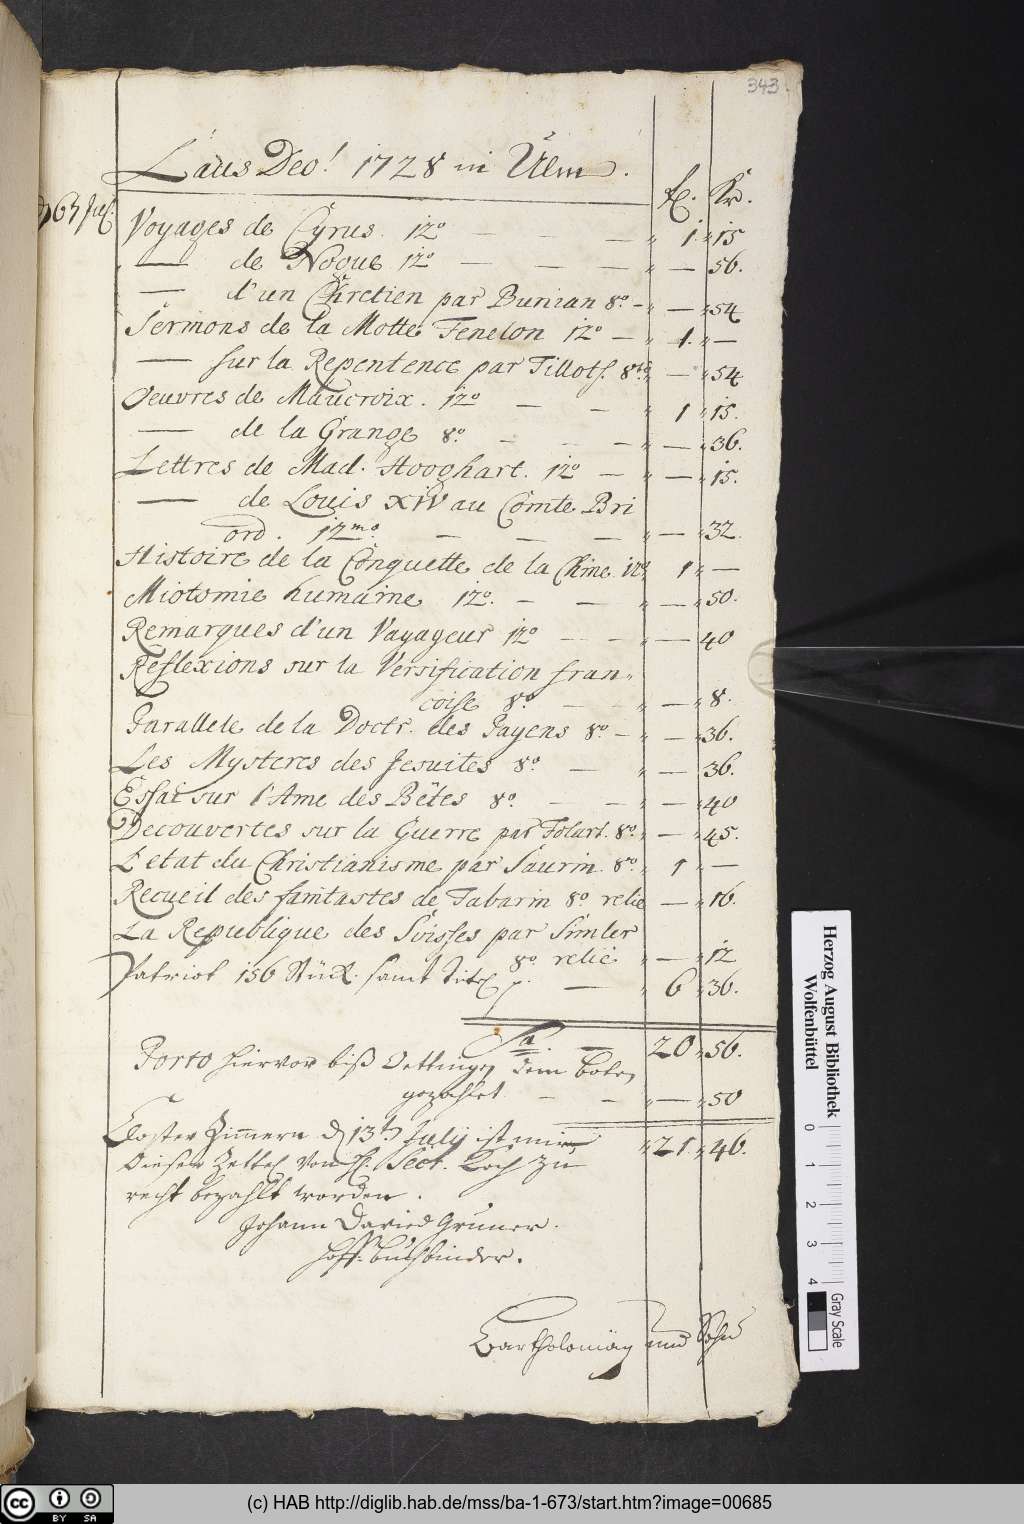 343
Laus Deo! 1728 in Ulm.
f. Kr.
Voyages de Cyrus. 12º — — — „ 1. „ 15
— de Nogue 12º — — — „ — „ 56.
— d'un Chretien par Bunian 8º. — „ — „ 54
Sermons de la Motte Fenelon 12º — „ 1. „ —
— sur la Repentence par Tillots. 8vº „ — „ 54
Oeuvres de Maucroix. 12º — — „ 1 „ 15.
— de la Grange 8º. — — — „ — „ 36.
Lettres de Mad. Hooghart. 12º — „ — „ 15.
— de Louis XIV au Comte Bri
ord. 12mº. — — — „ — „ 32.
Histoire de la Conquette de la Chine. 12º „ 1 „ —
Miotomie humaine 12º. — — „ — „ 50.
Remarques d'un Vayageur 12º — — „ — 40
Reflexions sur la Versification fran„
coise 8º — — „ — „ 8.
Parallele de la Doctr. des Payens 8º. — „ — „ 36.
Les Mysteres des Jesuites 8º. — „ — 36.
Essai sur l'Ame des Bêtes 8º. — — „ — „ 40
Decouvertes sur la Guerre par Folart. 8º. „ — „ 45.
L'etat du Christianisme par Saurin. 8º. „ 1 „ —
Recueil des fantastes de Tabarin 8º. relie — „ 16.
La Republique des Suisses par Simler
8º. relié „ — „ 12
Patriot 156 Stück. samt Titel — „ 6 „ 36.
Sa. — 20 „ 56.
Porto hiervor biß Oettingen dem botten
gezahlet — — „ — „ 50
„ 21. „ 46.
Closter Zimmern d 13th July ist mir
dieser Zettel von H. Secr. Koch zu
recht bezahlt worden.
Johann David Gruner.
Hoff-Buchbinder.
Bartholomäy und Sohn
Herzog August Bibliothek
Wolfenbüttel
0 1 2 3 4
Gray Scale
cc BY SA
(c) HAB http://diglib.hab.de/mss/ba-1-673/start.htm?image=00685